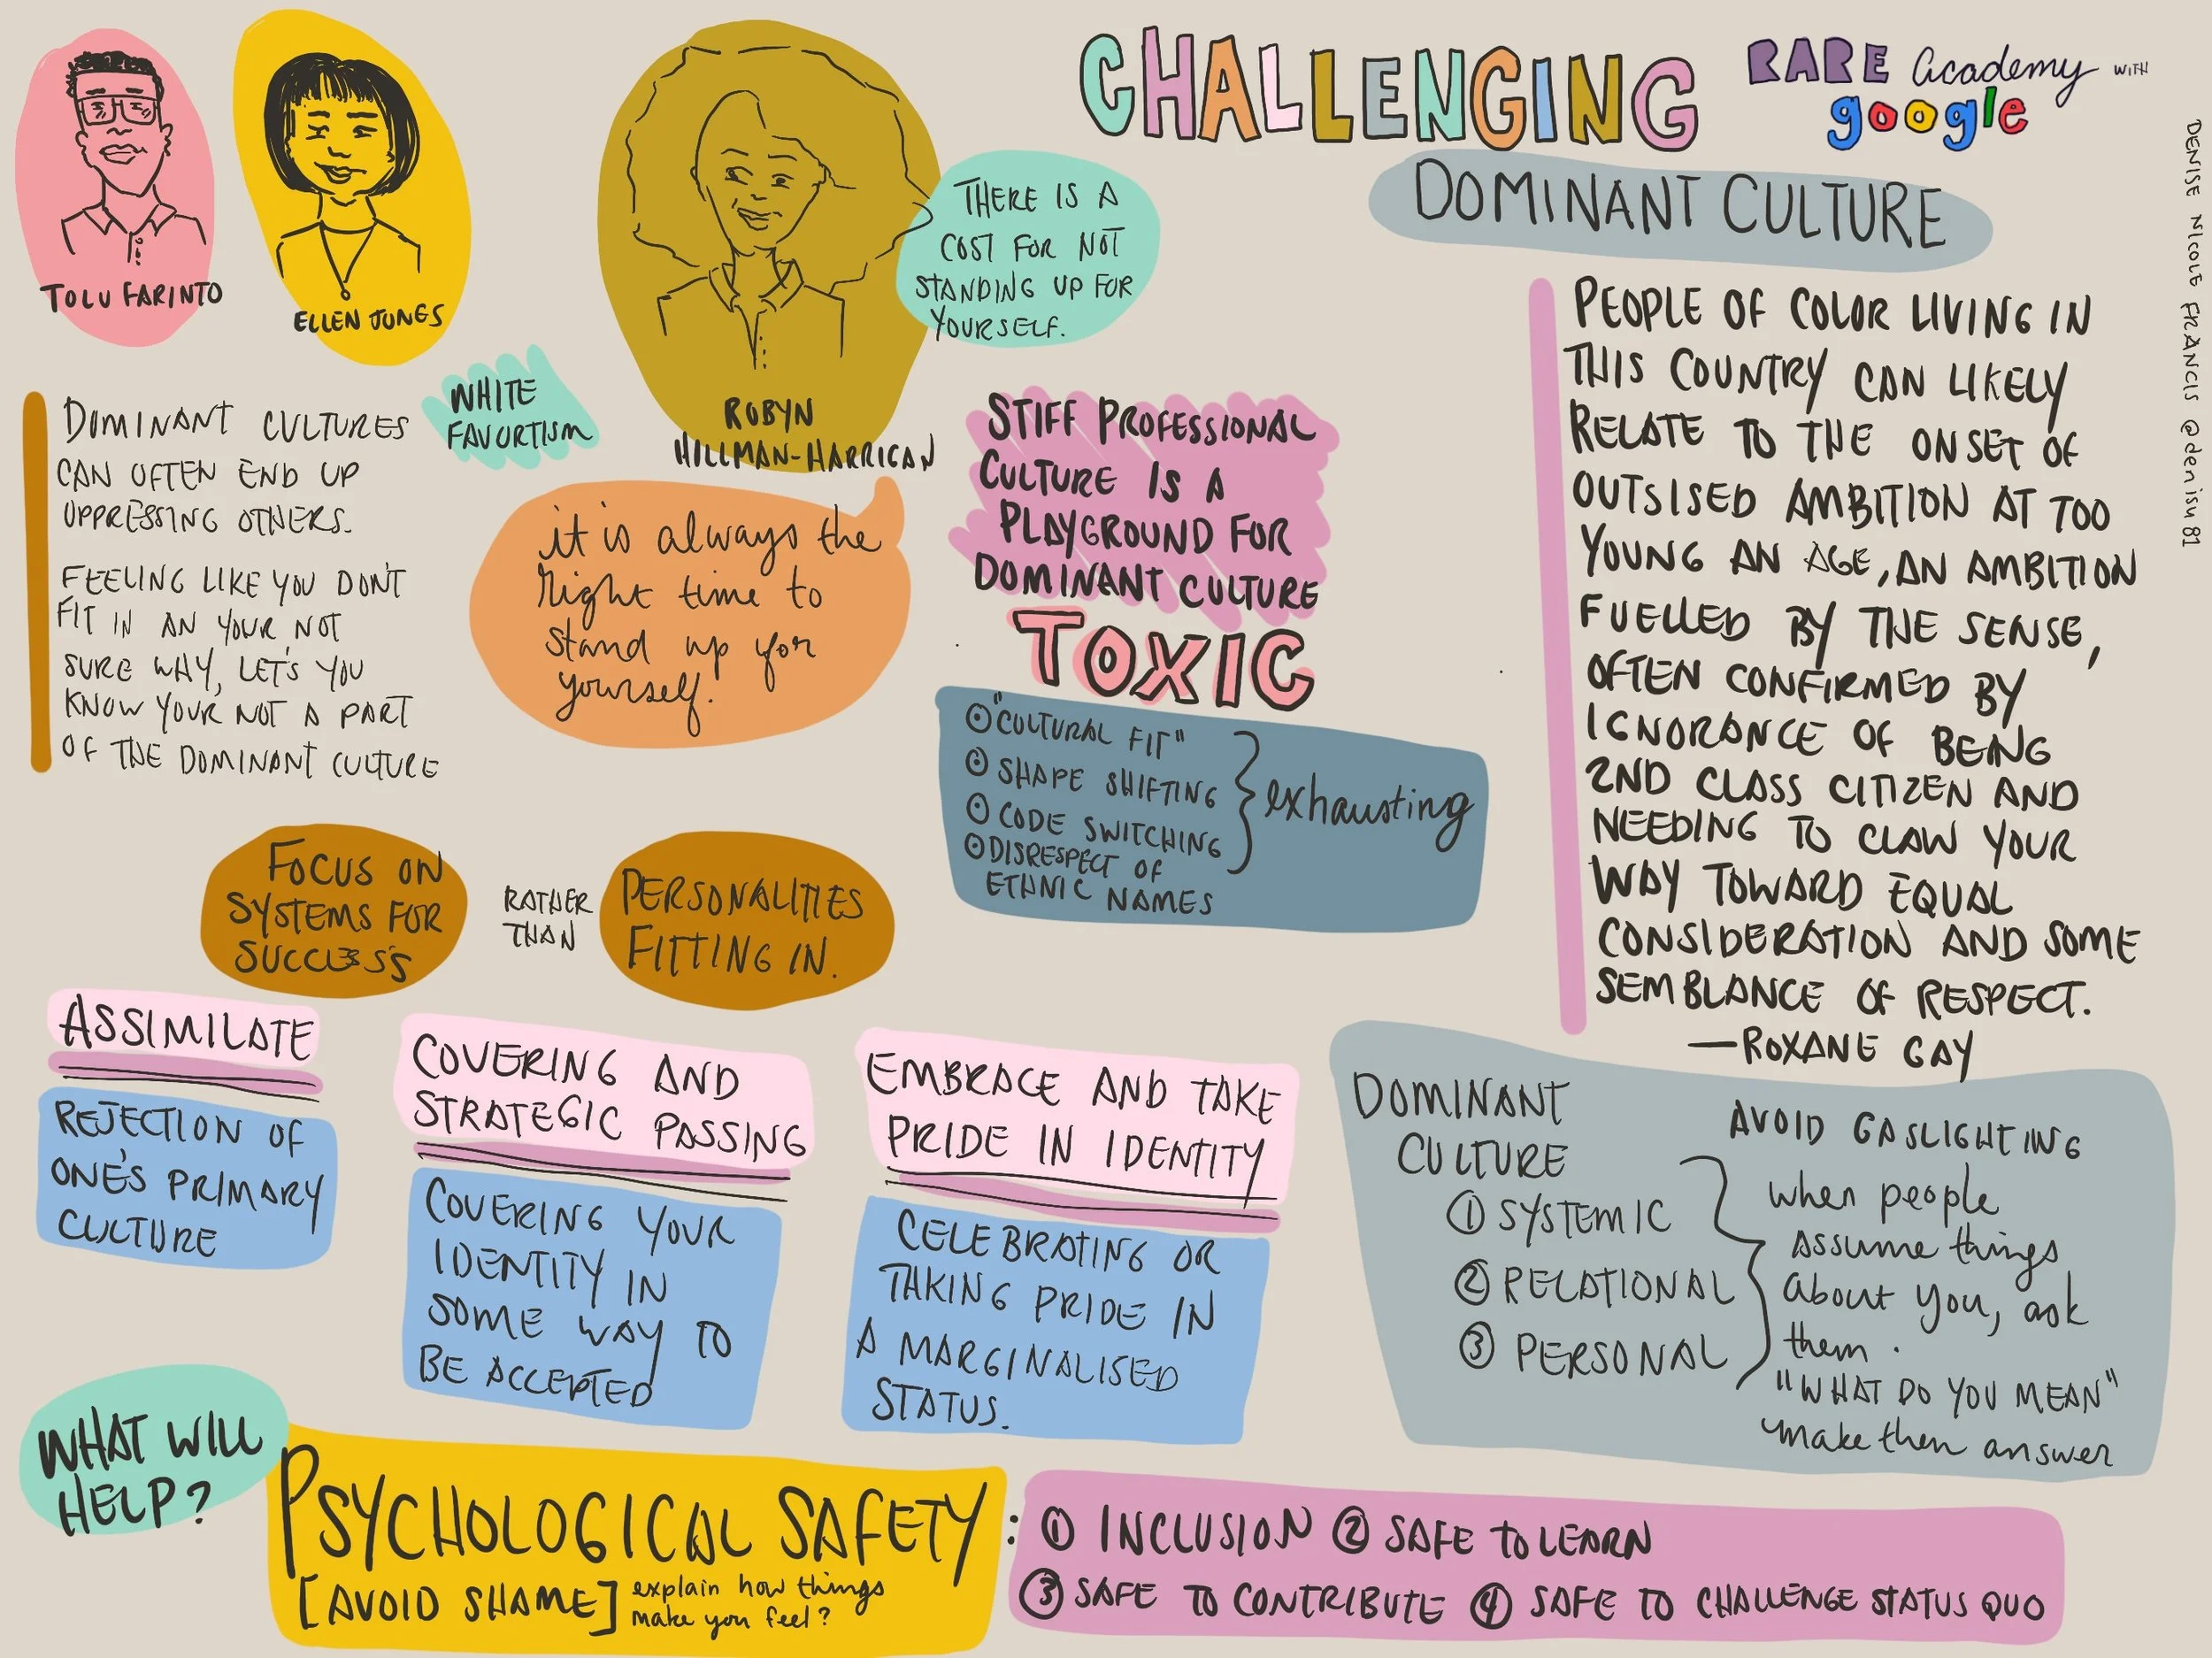 CHALLENGING
DOMINANT CULTURE
RARE academy WITH
google
DENISE NICOLE FRANCIS @denisu81
TOLU FARINTO
ELLEN JONES
ROBYN
HILLMAN-HARRIGAN
THERE IS A
COST FOR NOT
STANDING UP FOR
YOURSELF.
DOMINANT CULTURES
CAN OFTEN END UP
OPPRESSING OTHERS.
FEELING LIKE YOU DON'T
FIT IN AN YOUR NOT
SURE WHY, LET'S YOU
KNOW YOUR NOT A PART
OF THE DOMINANT CULTURE
WHITE
FAVORTISM
it is always the
right time to
stand up for
yourself!
STIFF PROFESSIONAL
CULTURE IS A
PLAYGROUND FOR
DOMINANT CULTURE
TOXIC
"CULTURAL FIT"
SHAPE SHIFTING
CODE SWITCHING
DISRESPECT OF
ETHNIC NAMES
exhausting
PEOPLE OF COLOR LIVING IN
THIS COUNTRY CAN LIKELY
RELATE TO THE ONSET OF
OUTSISED AMBITION AT TOO
YOUNG AN AGE, AN AMBITION
FUELLED BY THE SENSE,
OFTEN CONFIRMED BY
IGNORANCE OF BEING
2ND CLASS CITIZEN AND
NEEDING TO CLAW YOUR
WAY TOWARD EQUAL
CONSIDERATION AND SOME
SEMBLANCE OF RESPECT.
—ROXANE GAY
FOCUS ON
SYSTEMS FOR
SUCCESS
RATHER
THAN
PERSONALITIES
FITTING IN.
ASSIMILATE
REJECTION OF
ONE'S PRIMARY
CULTURE
COVERING AND
STRATEGIC PASSING
COVERING YOUR
IDENTITY IN
SOME WAY TO
BE ACCEPTED
EMBRACE AND TAKE
PRIDE IN IDENTITY
CELEBRATING OR
TAKING PRIDE IN
A MARGINALISED
STATUS.
DOMINANT
CULTURE
① SYSTEMIC
② RELATIONAL
③ PERSONAL
AVOID GASLIGHTING
when people
assume things
about you, ask
them.
"WHAT DO YOU MEAN"
make then answer
WHAT WILL
HELP?
PSYCHOLOGICAL SAFETY:
[AVOID SHAME]
explain how things
make you feel?
① INCLUSION ② SAFE TO LEARN
③ SAFE TO CONTRIBUTE ④ SAFE TO CHALLENGE STATUS QUO